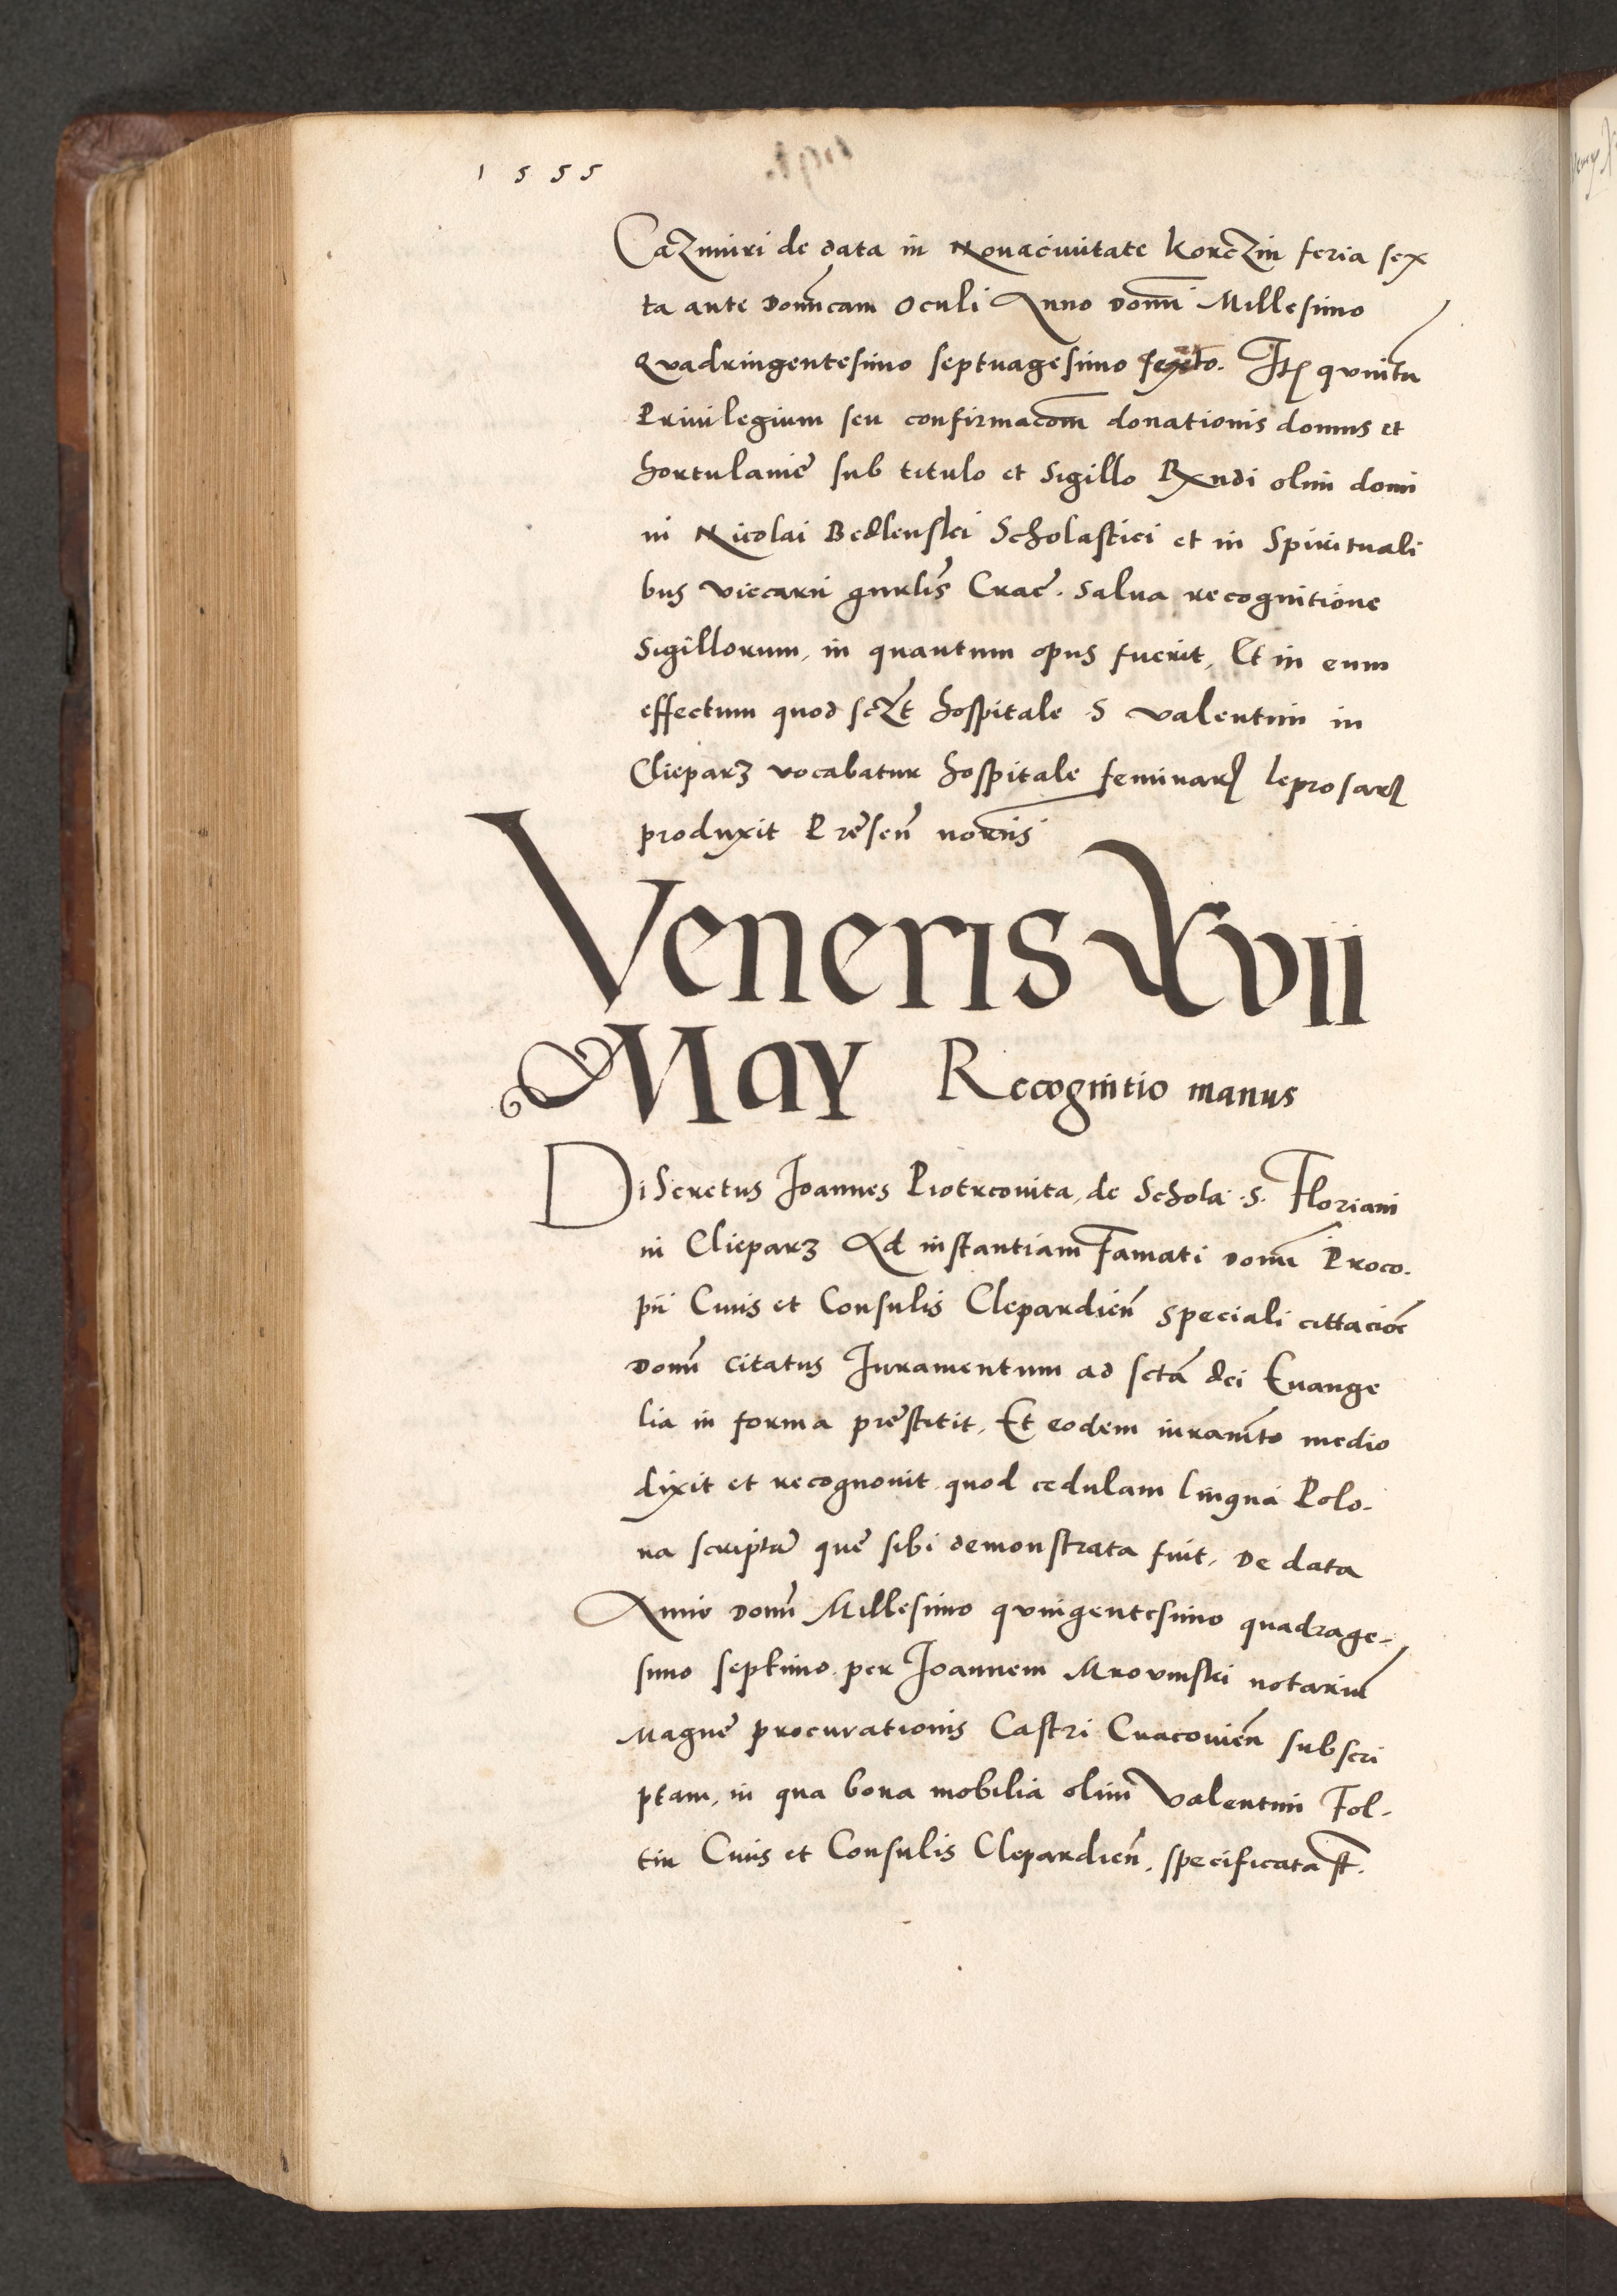 1555
Cazmiri de data in Nouaciuitate Korczin feria sex
ta ante Domīcam Oculi Anno Domī Millesimo
Quadringentesimo septuagesimo sexto. Itꝫ quintū
Priuilegium seu confirmacōm donationis domus et
hortulanie sub titulo et Sigillo Rxndi olim domi
ni Nicolai Bedlenski Scholastici et in Spirituali
bus viccarii gnrlis Crac. Salua recognitione
Sigillorum, in quantum opus fuerit, Et in eum
effectum quod sczt hospitale S valentini in
Clieparz vocabatur hospitale feminarꝝ leprosarꝝ
produxit Presen̄ nobis
Veneris Xvii
May Recognitio manus
Discretus Joannes Piotrcouita, de Schola .S. Floriani
in Clieparz Ad instantiam Famati Domī Proco-
pii Ciuis et Consulis Clepardien̄ speciali cittaciōe
Domī citatus Juramentum ad sctā dei Euange
lia in forma prestitit, Et eodem iuramto medio
dixit et recognouit quod cedulam lingua Polo-
na scriptā que sibi demonstrata fuit, De data
Anno Domī Millesimo quingentesimo quadrage-
simo septimo per Joannem Mrowinski notariū
Magne procurationis Castri Cracouien̄ subscri
ptam, in qua bona mobilia olim Valentini Fol-
tin Ciuis et Consulis Clepardien̄, specificata st̄.